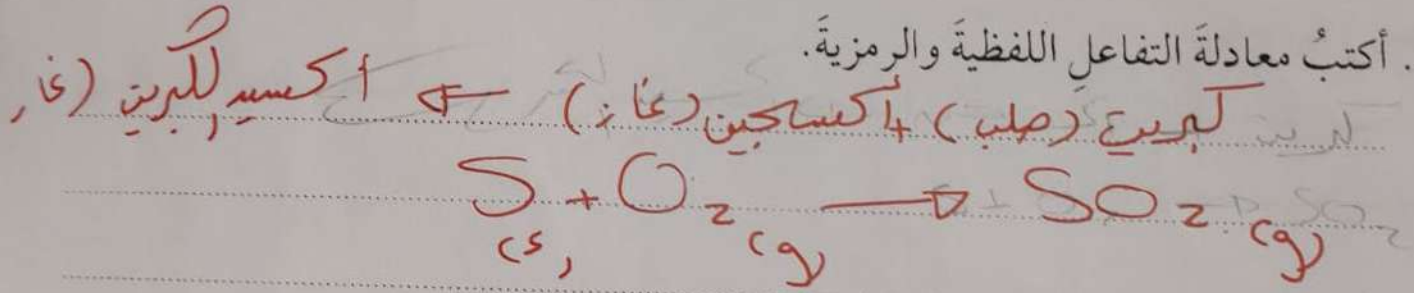 . أكتبُ معادلةَ التفاعلِ اللفظيةَ والرمزيةَ.
كبريت (صلب) + أكسجين (غاز) ← أكسيد الكبريت (غاز
S(s) + O2(g) → SO2(g)